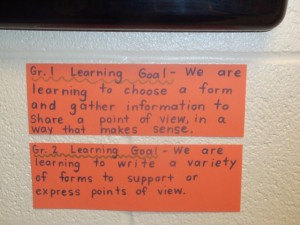 Gr. 1 Learning Goal - We are
learning to choose a form
and gather information to
share a point of view, in a
way that makes sense.
Gr. 2 Learning Goal - We are
learning to write a variety
of forms to support or
express points of view.